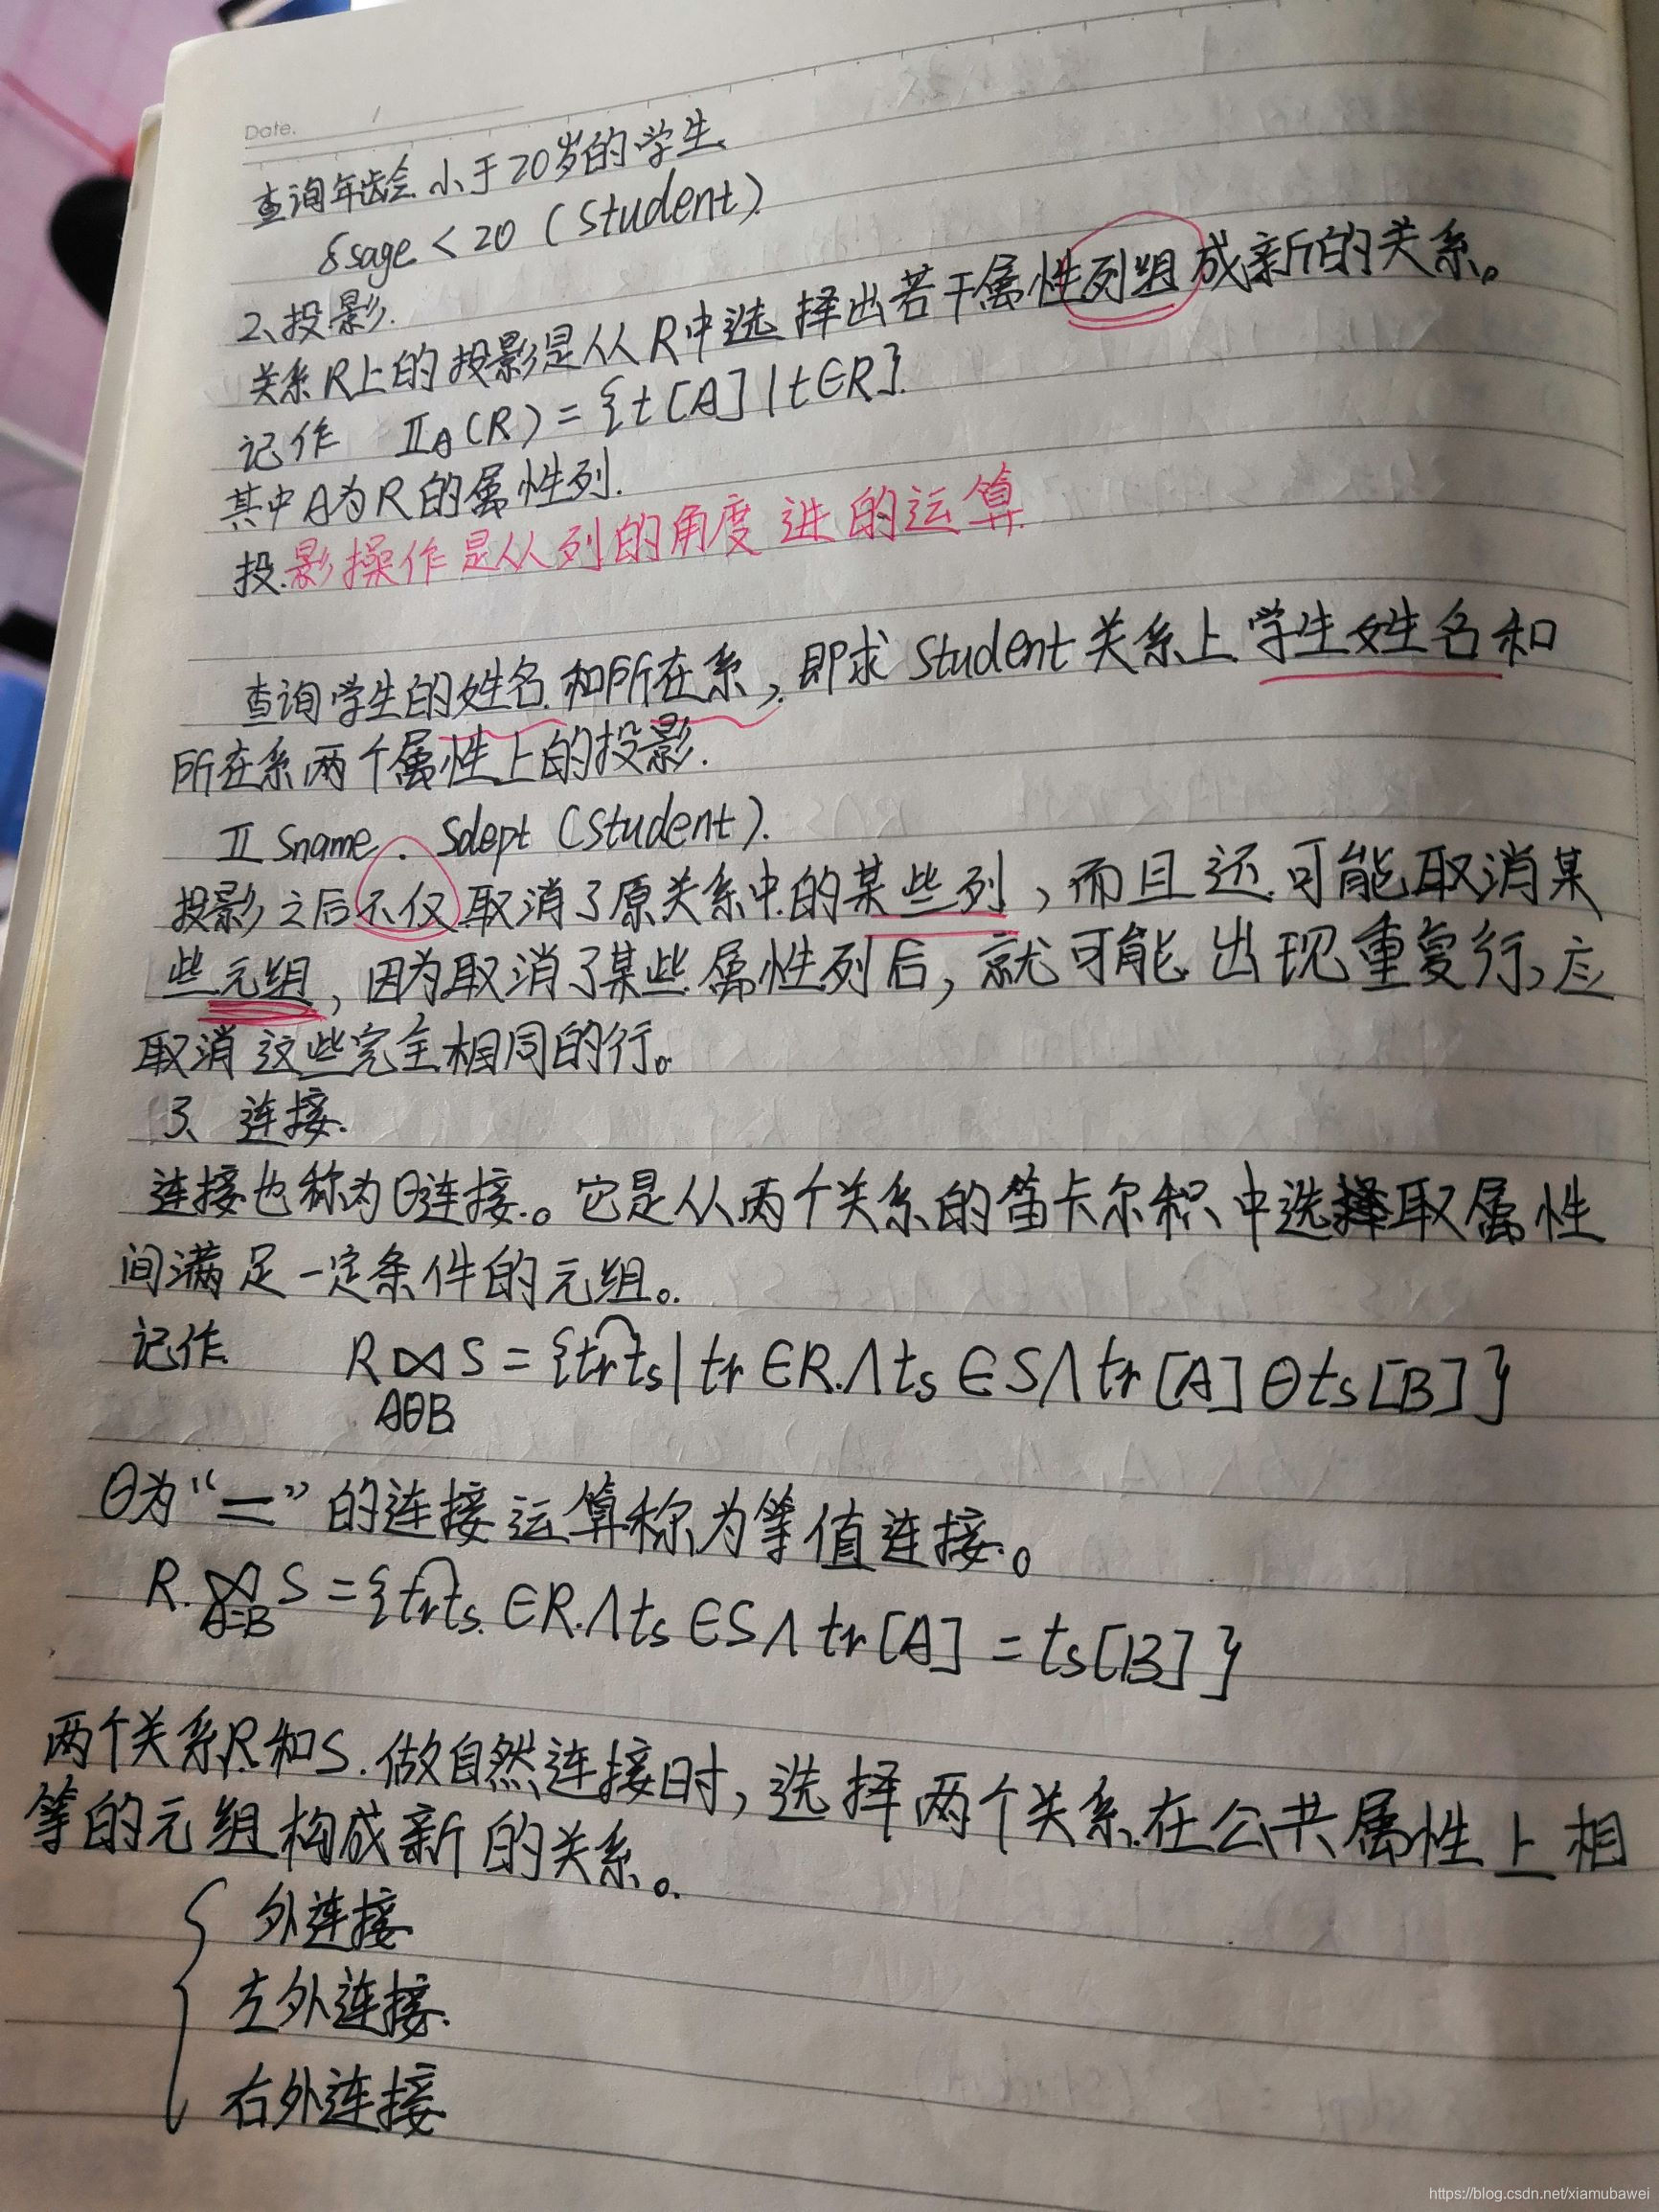 Date. /
查询年龄 小于20岁的学生
δsage < 20 (Student)
2、投影.
关系R上的投影是从R中选择出若干属性列组成新的关系。
记作 ΠA(R) = {t[A] | t∈R}.
其中A为R的属性列.
投影操作是从列的角度进的运算
查询学生的姓名和所在系，即求Student关系上学生姓名和
所在系两个属性上的投影.
Π Sname . Sdept (Student).
投影之后不仅取消了原关系中的某些列，而且还可能取消某
些元组，因为取消了某些属性列后，就可能出现重复行，应
取消这些完全相同的行。
3、连接.
连接也称为θ连接。它是从两个关系的笛卡尔积中选择取属性
间满足一定条件的元组。
记作 R⋈S = {tr⌒ts | tr∈R∧ts∈S∧tr[A]θts[B]}
AθB
θ为“=”的连接运算称为等值连接。
R⋈S = {tr⌒ts ∈R∧ts∈S∧tr[A] = ts[B]}
A=B
两个关系R和S.做自然连接时，选择两个关系在公共属性上相
等的元组构成新的关系。
外连接
左外连接
右外连接
https://blog.csdn.net/xiamubawei